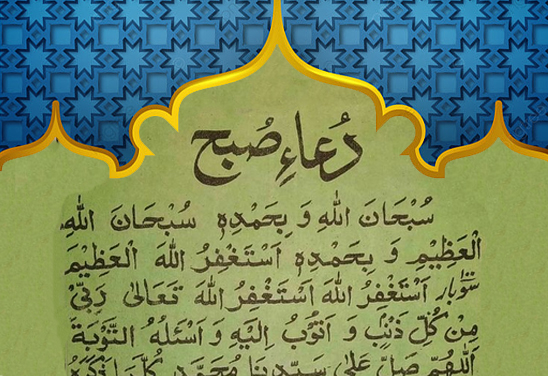 دُعاءِ صُبح
سُبْحَانَ اللهِ وَ بِحَمْدِهٖ سُبْحَانَ اللهِ
الْعَظِيْمِ وَ بِحَمْدِهٖ اَسْتَغْفِرُ اللهَ الْعَظِيْمَ
سَوْبار اَسْتَغْفِرُ اللهَ اَسْتَغْفِرُ اللهَ تَعَالٰى رَبِّيْ
مِنْ كُلِّ ذَنْبٍ وَ اَتُوْبُ اِلَيْهِ وَ اَسْئَلُهُ التَّوْبَةَ
اَللّٰهُمَّ صَلِّ عَلٰى سَيِّدِنَا مُحَمَّدٍ كُلَّمَا ذَكَرَهُ